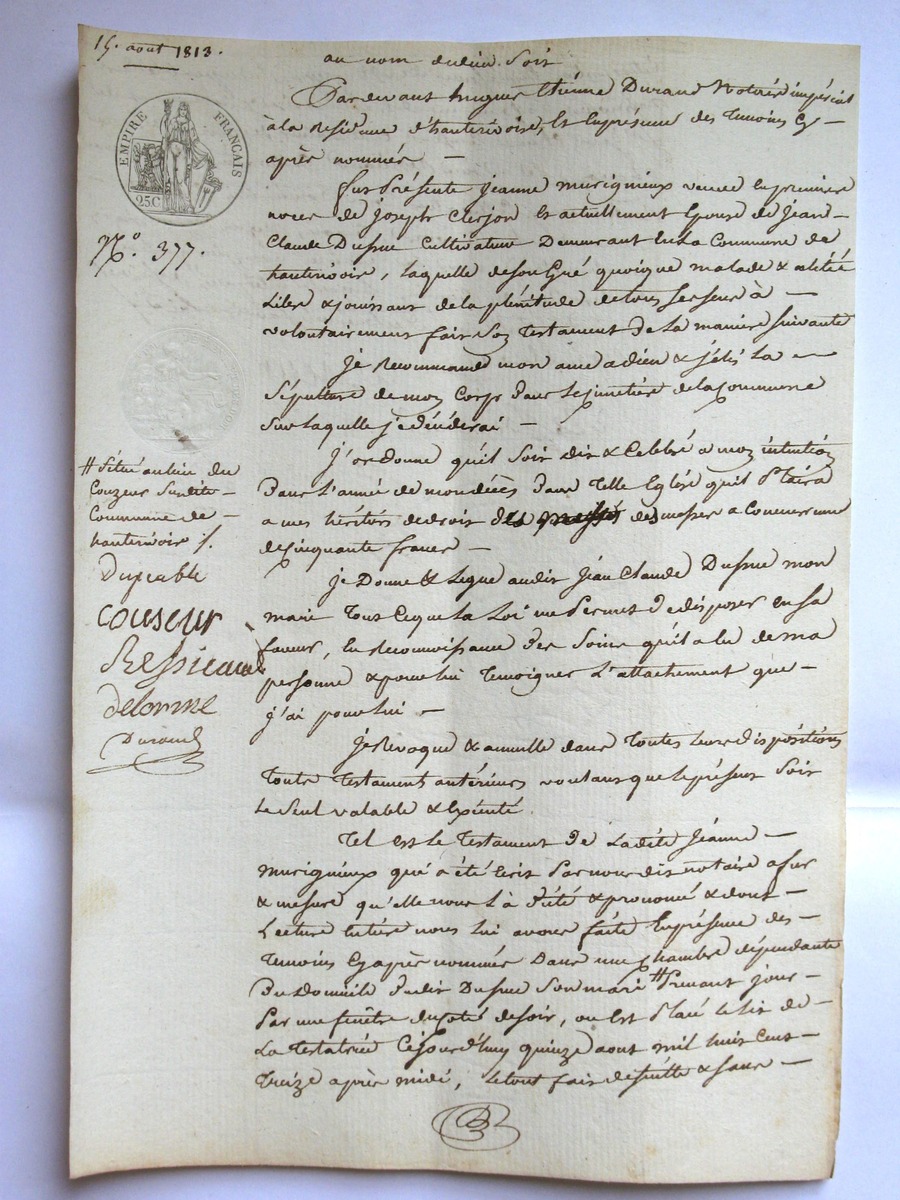 15. aout 1813.
au nom dudieu Soit
EMPIRE FRANÇAIS
25C
N.º 377.
Pardevant hugues Etienne Durand Notaire impérial
à la Residence d'hauterivoire, Et Enprésence des Temoins Cy
après nommés —
fut Présente jeanne murigneux veuve En premiere
noces de joseph Clerjon Et actuellement Epouse de jean
Claude Dusfne Cultivateur Demeurant En La Commune de
hauterivoire, Laquelle de son Gré quoique malade & alitée
Libre & jouissant de la plénitude de tous ses sens à —
volontairement fait Son Testament de la maniere Suivante
je Recommande mon ame a dieu & j'élis La
Sépulture de mon Corps Dans Le simetière de la Commune
Sur Laquelle je décéderai —
J'ordonne qu'il Soit dit & Celebré a mon intention
Dans L'année de mon décès Dans Telle Eglise qu'il Plaira
a mes héritiers de droit des messes a Concurrence
de Cinquante francs —
je Donne & Legue audit Jean Claude Dusfne mon
mari Tous Ce que La Loi me Permet de disposer en Sa
faveur, En Reconnoissance des Soins qu'il a Eu de ma
personne & pour Lui Temoigner L'attachement que —
j'ai pour Lui —
je Revoque & annulle dans Toutes Leurs dispositions
Toute Testament antérieurs voulant que le présent Soit
Le Seul valable & Exécuté
Tel est Le Testament de Ladite Jeanne —
murigneux qui a été Ecrit Par nous dit notaire a fur
& mesure qu'elle nous L'a dicté & prononcé & dont —
Lecture Entière nous Lui avons faite En présence des —
Temoins Cy après nommés Dans une Chambre dépendante
Du Domicile Dudit Dusfne Son mari # Prenant jour —
Par une fenêtre du coté de soir, ou Est Placé le Lit de —
La Testatrice Cejourd'huy quinze aout mil huit Cent —
Treize après midi, Le tout fait de suitte & sans —
# Situé au lieu du
Couzeur Susdite —
Commune de —
hauterivoir /.
Dupeuble
Couseur
Ressicaud
delorme
Durand